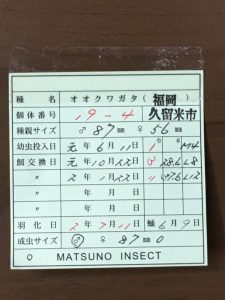 種 名 オオクワガタ(福岡 久留米市
個体番号 19-4
種親サイズ ♂ 87㎜ ♀ 56㎜
幼虫投入日 元年6月11日 1令
餌交換日 元年10月22日
〃 2年1月22日
〃 年 月 日
〃 年 月 日
羽化日 2年7月11日 蛹6月9日
成虫サイズ ♂ ♀ 87㎜0
MATSUNO INSECT